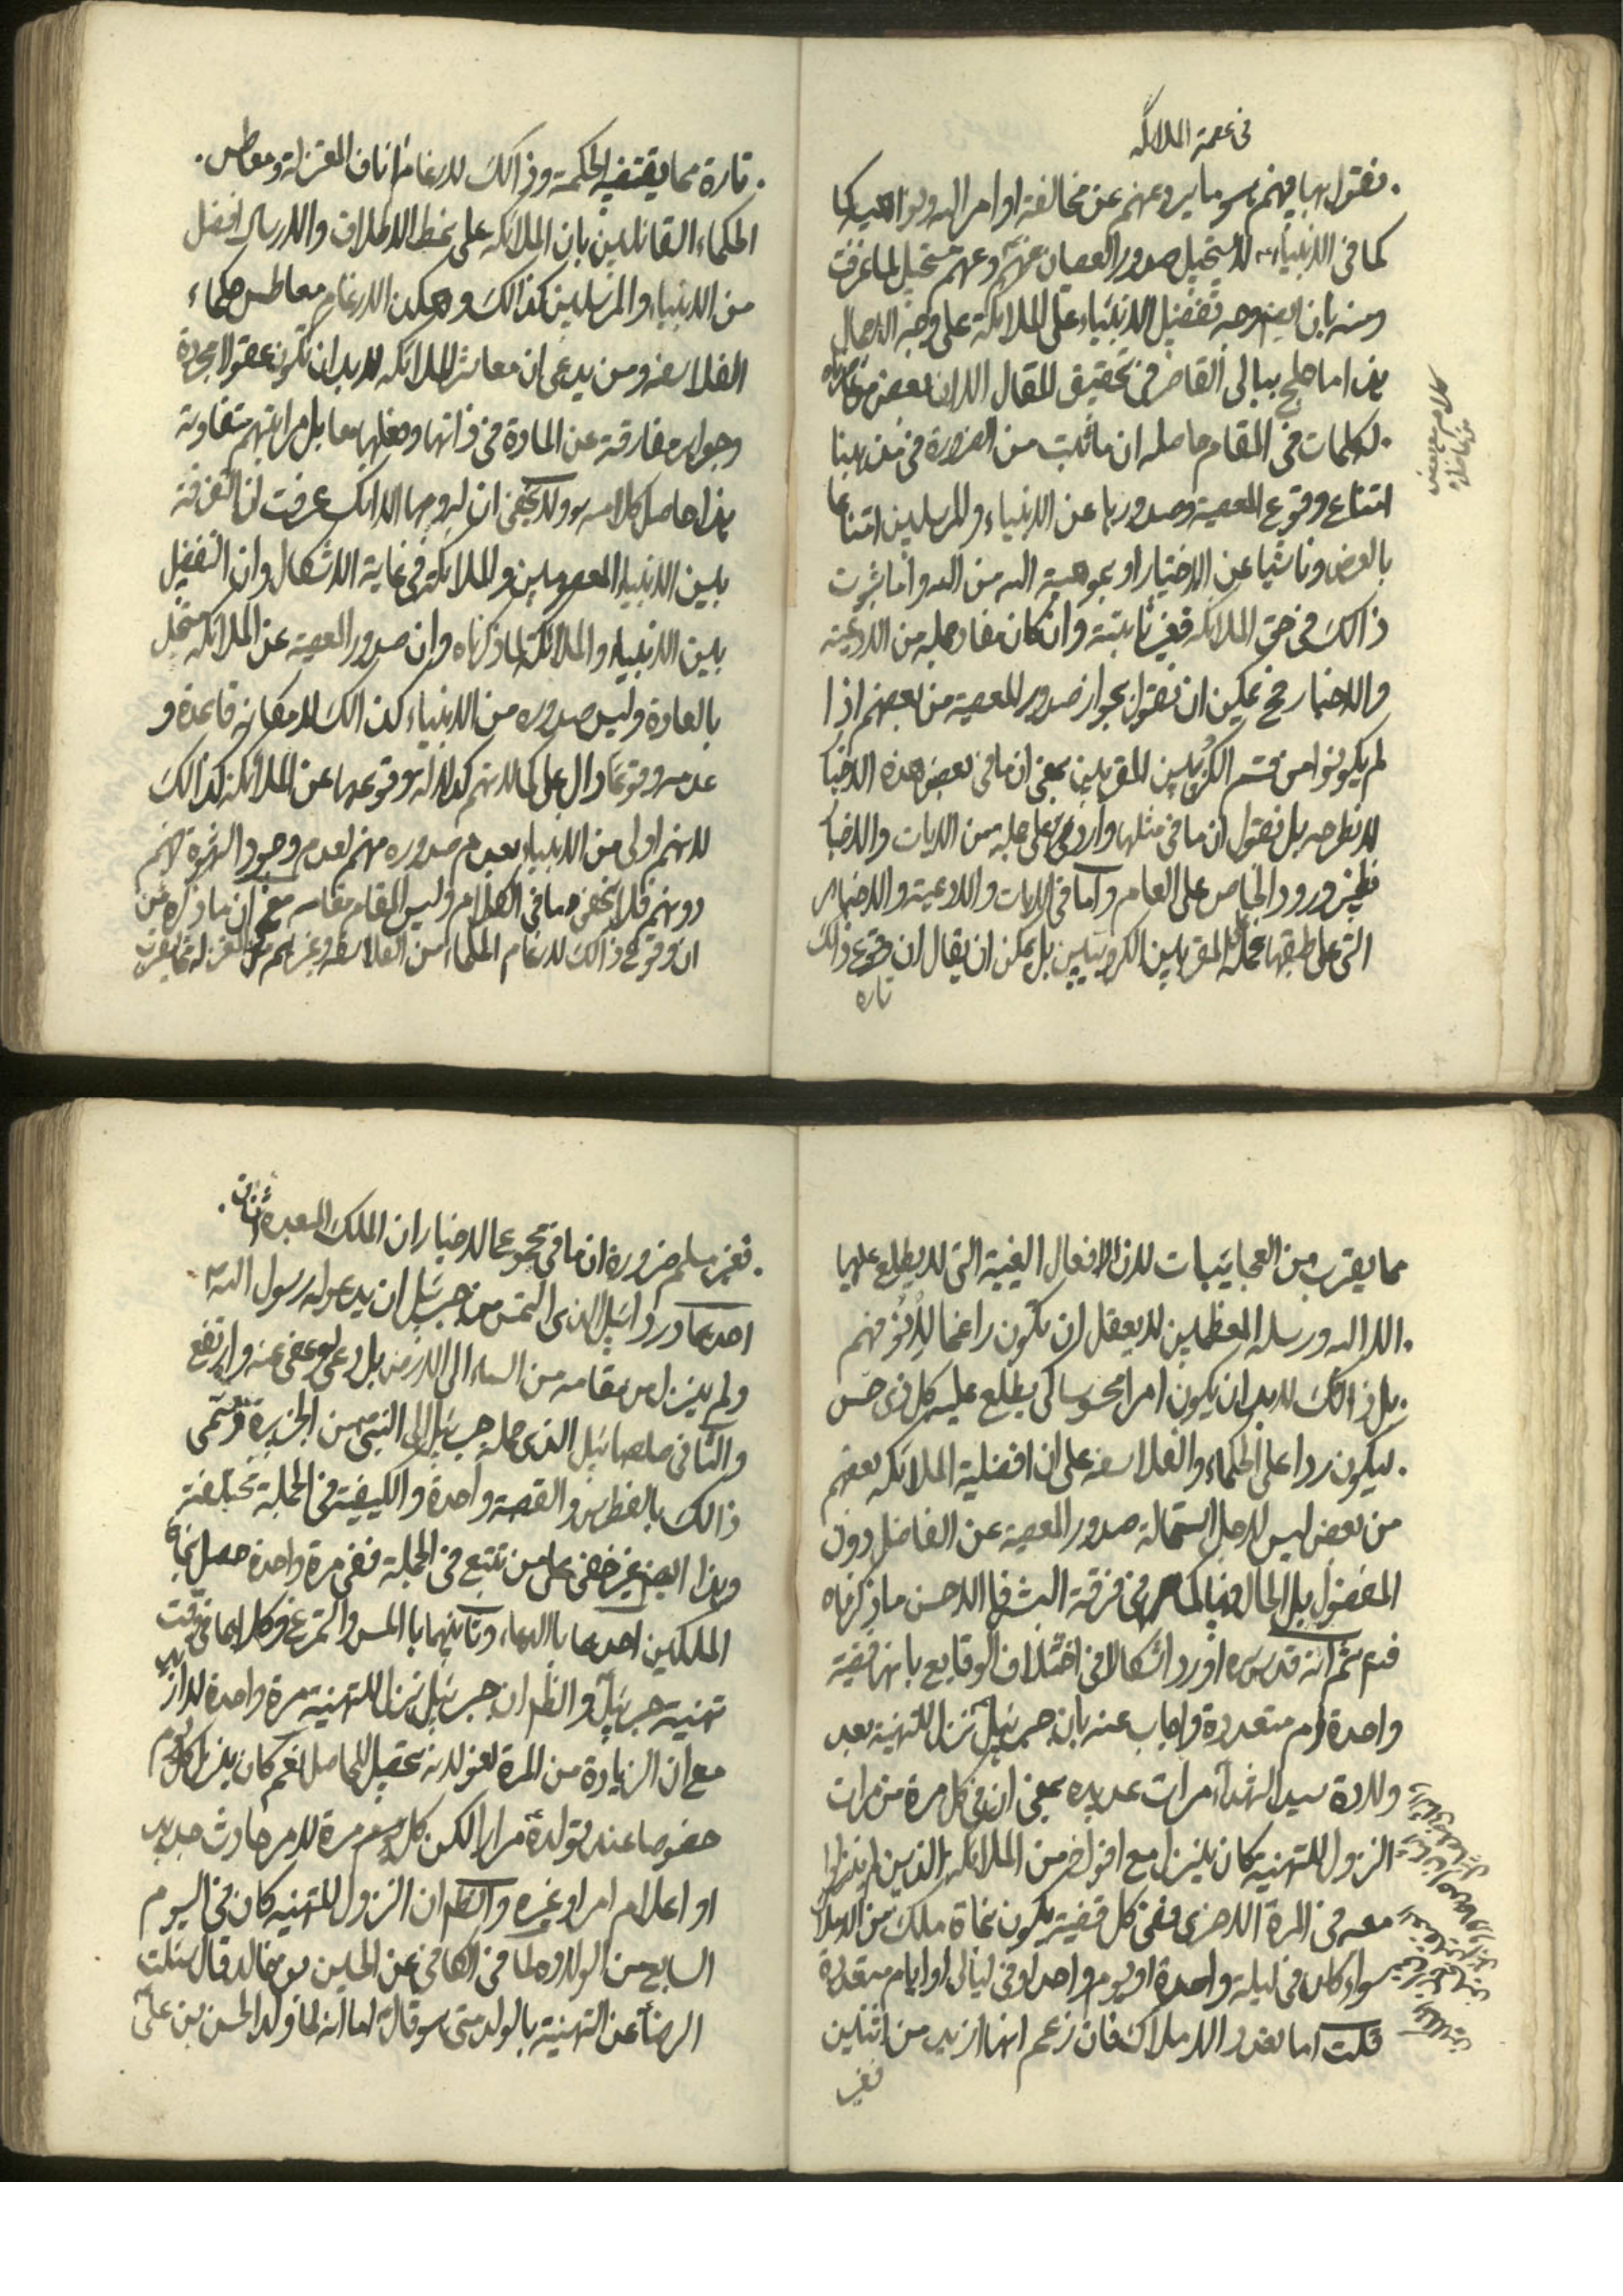 في عصمة الملائكة
فنقول بها فيهم هو ما يردعهم عن مخالفة اوامر الله ونواهيه كما
كما في الانبياء لا يستحيل صدور العصيان عنهم وعنهم مستحيل لما عرفت
ومنه بان ايض وجه تفضيل الانبياء على الملائكة على وجه الاجمال
هذا ما صلح ببالي القاصر في تحقيق المقال الا ان لبعض معاصريناه
له كلمات في المقام حاصله ان ما ثبت من الضرورة في مذهبنا
امتناع وقوع المعصية وصدورها عن الانبياء والمرسلين امتناعا
بالعرض وناشيا عن الاختيار او بموهبة الله من الله واما ثبوت
ذالك في حق الملائكة فغير ثابتة وان كان مفاد جملة من الادعية
والاخبار فح يمكن ان نقول بجواز صدور المعصية من بعضهم اذا
لم يكونوا من قسم الكروبيين المقربين بمعنى ان ما في بعض هذه الاخبا
لا نطرحه بل نقول ان ما في مثلها وارد على جملة من الايات والاخبا
نظير ورود الخاص على العام واما في الايات والادعية والاخبار
التي على طبقها محمله المقربين الكروبيين بل يمكن ان يقال ان وقوع ذالك
تاره
تارة مما يقتضيه الحكمة وذالك لارغام اناف المعتزلة ومعاطس
الحكماء القائلين بان الملائكة على نمط الاطلاق والارسال افضل
من الانبياء والمرسلين كذالك وهكذا لارغام معاطس حكماء
الفلاسفه ومن يدعى ان معاشر الملائكه لابد ان تكون عقولا مجردة
وجواهر مفارقة عن المادة في ذاتها وفعلها معا بل مراتبهم متفاوتة
هذا حاصل كلامه ولا يخفى ان لزومها الا انك عرفت ان التفرقة
بين الانبياء المعصومين والملائكة في غاية الاشكال وان التفضيل
بين الانبياء والملائكة لما ذكرناه وان صدور المعصية عن الملائكه مستحيل
بالعادة وليس صدوره من الانبياء كذالك
عدمه وقوعا دال على كمالاتهم كدلالة وقوعها عن الملائكة كذالك
لانهم اولى من الانبياء بعدم صدوره منهم لعدم وجود الشهوة فيهم
دونهم فلا يخفى ما في الكلام وليس المقام مقامه مع ان ما ذكره من
ان وقوع ذالك لارغام الحكماء من الفلاسفه وغيرهم من المعتزلة مما يقرب
مما يقرب من العجائبيات لان الافعال الغيبية التي لا يطلع عليها
الا الله ورسله المعظمين لا يعقل ان يكون راغما لانوفهم
بل ذالك لابد ان يكون امرا محسوسا كي يطلع عليه كل ذى حس
ليكون ردا على الحكماء والفلاسفه على ان افضلية الملائكه بعضهم
من بعض ليس لاجل استحالة صدور المعصية عن الفاضل دون
المفضول بل الحال فيها كما في فرقة البشر فالاحسن ما ذكرناه
فدع ثم انه قدس سره اورد اشكالا في اختلاف الوقايع بانها قضية
واحدة ام متعددة واجاب عنه بان جبرئيل نزل للتهنية بعد
ولادة سيد الشهداء مرات عديده بمعنى ان في كل مرة من مرات
النزول للتهنية كان ينزل مع افواج من الملائكه الذين لم ينزلوا
معه في المرة الاخرى ففي كل قضية يكون نجاة ملك من الاملا
سواء كان في ليلة واحدة او يوم واحد او في ليالى او ايام متعددة
قلت اما تعدد الاملاك فان زعم انها ازيد من اثنين
فغير
فغير مسلم ضرورة ان ما في مجموع الاخبار ان الملك المعبره اثنان
احدهما دردائيل الذى التمس من جبرئيل ان يدعو له رسول الله
ولم ينزل من مقامه من السماء الى الارض بل دعى له وعفى عنه وارتفع
والثاني صلصائيل الذى حمله جبرئيل الى النبي من الجزيرة وتسمى
ذالك بالفطرس والقصة واحدة والكيفية في الجملة مختلفة
وهذا ايض غير خفى على من تتبع في الجملة ففي مرة واحدة حصل نجاة
الملكين احدهما بالدعاء وثانيهما بالمس والتمرغ وكلاهما في وقت
تهنية جبرئيل والظ ان جبرئيل نزل للتهنية مرة واحدة لا ازيد
مع ان الزيادة من المرة لغو لانه تحصيل للحاصل نعم كان ينزل كل يوم
خصوصا عند تولده مرارا لكن كل مرة لامر حادث جديد
او اعلام امر او غيره والظ ان النزول للتهنيه كان في اليوم
السابع من الولاده لما في الكافي عن الحسين بن خالد قال سئلت
الرضا عن التهنية بالولد متى هو قال اما انه لما ولد الحسن بن على